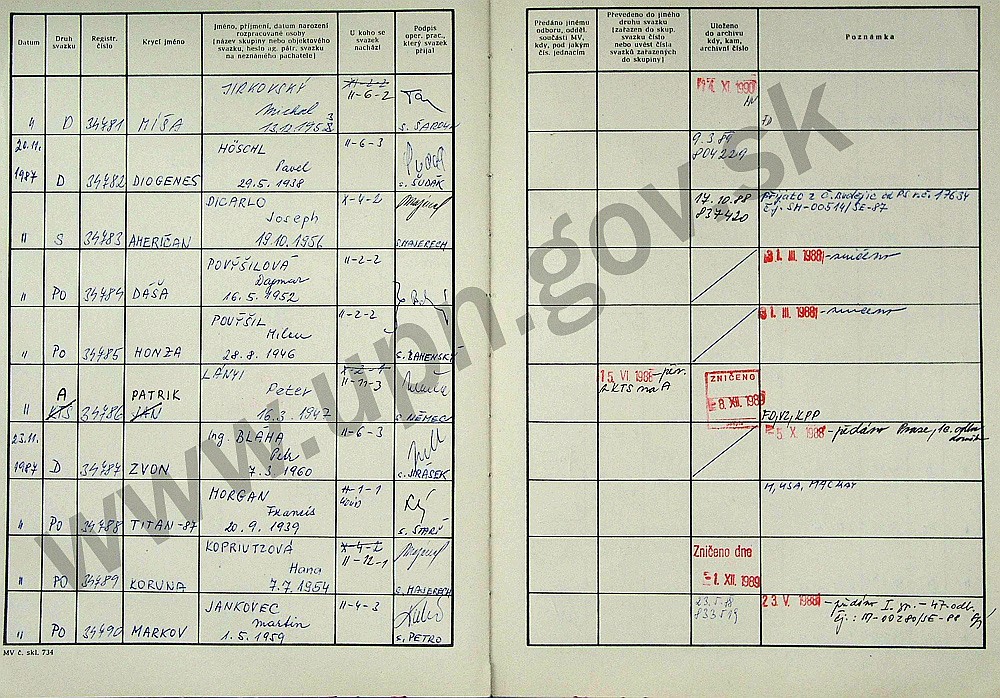 Datum
Druh svazku
Registr. číslo
Krycí jméno
Jméno, příjmení, datum narození
rozpracované osoby
(název skupiny nebo objektového
svazku, heslo ag. pátr. svazku
na neznámého pachatele)
U koho se
svazek
nachází
Podpis
oper. prac.,
který svazek
přijal
Předáno jinému
odboru, odděl.
součásti MV,
kdy, pod jakým
čís. jednacím
Převedeno do jiného
druhu svazku
(zařazen do skup.
svazku číslo
nebo uvést čísla
svazků zařazených
do skupiny)
Uloženo
do archivu
kdy, kam,
archivní číslo
Poznámka
" D 34781 MÍŠA
JIRKOVSKÝ
Michal
13.12.1953
XI-2-2
II-6-2
XI. 1990
20.11.
1987 D 34782 DIOGENES
HÖSCHL
Pavel
29.5.1938
II-6-3
s. ŠUDÁK
9.3.89
804229
" S 34783 AMERIČAN
DICARLO
Joseph
19.10.1956
X-4-2
s. MAJERECH
17.10.88
837420
Přijato z Č. Budějic od PS r.č. 17634
Čj. SM-00514/SE-87
" PO 34784 DÁŠA
POVÝŠILOVÁ
Dagmar
16.5.1952
II-2-2
31. III. 1988 - zničeno
" PO 34785 HONZA
POVÝŠIL
Milan
28.8.1946
II-2-2
31. III. 1988 - zničeno
A
" KTS 34786
PATRIK
JAN
LÁNYI
Peter
16.3.1947
X-2-1
II-11-3
s. NĚMEC
z KTS na A
ZNIČENO
-8. XII. 1989
23.11.
1987 D 34787 ZVON
Ing. BLÁHA
Petr
7.3.1960
II-6-3
s. JIRÁSEK
-5. X. 1988 - předáno
" PO 34788 TITAN-87
MORGAN
Francis
20.9.1939
II-1-1
s. STARÝ
M, USA, MACKAY
" PO 34789 KORUNA
KOPRIVTZOVÁ
Hana
7.7.1954
X-4-2
II-12-1
s. MAJERECH
Zničeno dne
-1. XII. 1989
" PO 34790 MARKOV
JANKOVEC
Martin
1.5.1959
II-4-3
s. PETRO
833519
23. V. 1988 - předáno I. - 47. odb.
Čj.: M-00280/SE-88
MV č. skl. 734
www.upn.gov.sk